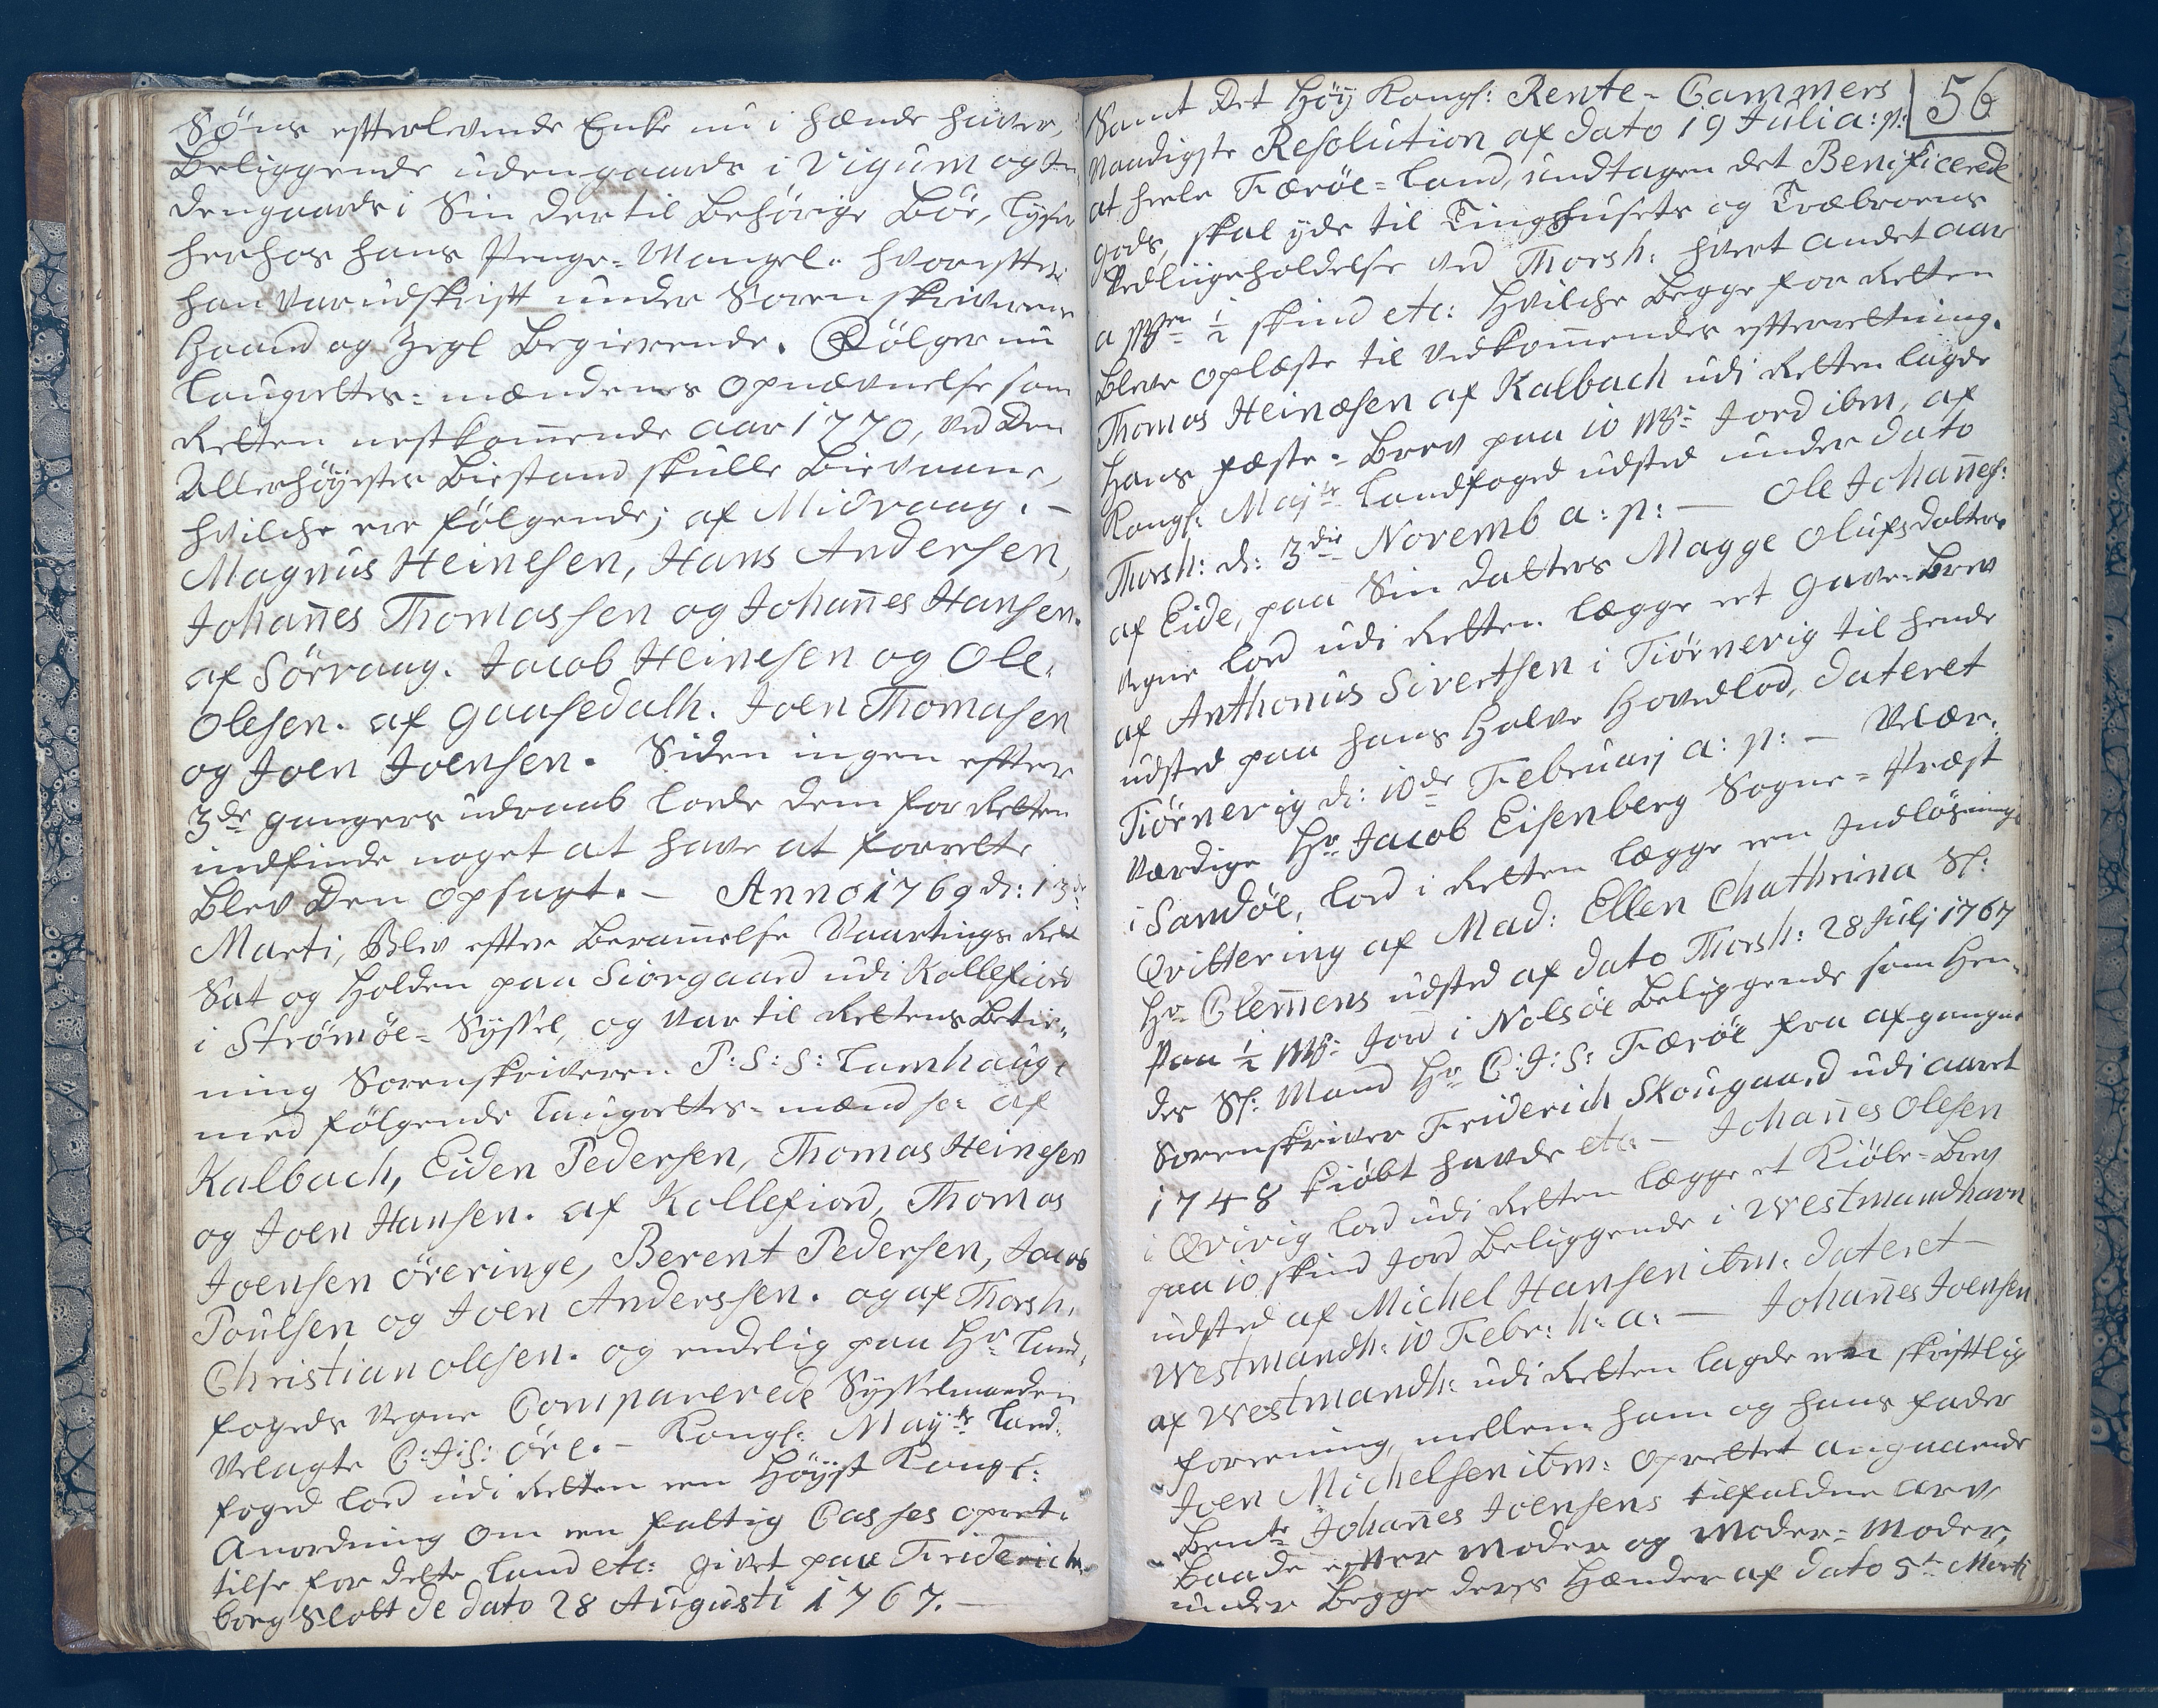 Søns efterlevende Enke nu i hænde haver,
Beliggende udengaards i Vigum og In-
dengaards i Sin dertil behørige Bøe, lyser
herhos hans Penge-Mangel. hvorefter
han var udskrift under Sorenskriverens
Haand og Zegl Begierende. Følger nu
Laugrettes-mændenes opnævnelse som
Retten nestkom̅ende aar 1770, ved Den
Allerhøyestes Biestand skulle Bievaane,
hvilche ere følgende; af Midvaag. -
Magnus Heinesen, Hans Andersen,
Johan̅es Thomassen og Johan̅es Hansen.
af Sörvaag. Jacob Heinesen og Ole
Olesen. af Gaasedalh. Joen Thomasen
og Joen Joensen. Siden ingen efter
3de gangers udraab lode dem for Retten
indfinde noget at have at forrette
blev Den opsagt. - Anno 1769 d: 13de
Marti, Blev efter Beram̅else Vaartings Ret
Sat og Holden paa Siorgaard udi Kollefiord
i Strömöe-Syssel, og var til Rettens Betie-
ning Sorenskriveren P: S: S: Lamhauge
med følgende Laugrettes-mænd sc: af
Kalbach, Eiden Pedersen, Thomas Heinesen
og Joen Hansen. af Kollefiord, Thomas
Joensen öreringe, Berent Pedersen, Jacob
Poulsen og Joen Anderssen. og af Thorsh.
Christian olesen. og endelig paa Hr. Land-
fogeds Vegne Comparerede Sysselmanden
Velagte C: J: S: öre. - Kongl: Mayts Land-
foged lod udi Retten een Høyst Kongl:
Anordning om een fattig Casses opret-
telse for dette Land etc: givet paa Friderichs-
borg Slott de dato 28 Augusti 1767. -
56
Samt Det Høy Kongl: Rente-Cammers
Naadigste Resolution af dato 19 Julia: p:
at heele Færöe-Land, undtagen det Benificerede
gods, skal yde til Tinghusets og Træbroens
Vedligeholdelse ved Thorsh: hvert andet aar
a Mgr 1/2 skind etc: hvilche begge for Retten
bleve oplæste til Vedkom̅endes efterretning.
Thomas Heinæsen af Kalbach udi Retten lagde
Hans fæste-Brev paa 10 Mgr: Jord ibm, af
Kongl: Mayts Landfoged udsted under dato
Thorsh: d: 3die Novemb a: p: - Ole Johan̅es:
af Eide, paa Sin datters Magge Olufsdatters
vegne lod udi Retten lægge et Gave-Brev
af Anthonius Sivertsen i Tiörnevig til hende
udsted paa hans halve Hovedlod, dateret
Tiörnevig d: 10de Februarj a: p: - Velær-
værdige Hr. Jacob Eisenberg Sogne-Præst
i Sandöe, lod i Retten lægge een Indløsnings
Qvittering af Mad: Ellen Chathrina Sl:
Hr. Clem̅ens udsted af dato Thorsh: 28 Julj 1767
Paa 1/2 Mgr: Jord i Nolsöe beliggende som Hen-
des Sl: Mand Hr. C: J: S: Færöe fra afgangne
Sorenskriver Friderich Skougaard udi aaret
1748 kiøbt havde etc: - Johan̅es Olesen
i Qvivig lod udi Retten lægge et Kiöbe-Brev
paa 10 skind Jord Beliggende i Westmandhavn
udsted af Michel Hansen ibm: dateret
Westmandh: 10 Febr: h: a: - Johan̅es Joensen
af Westmandh: udi Retten lagde en skriftlig
forening, mellem ham og hans fader
Joen Michelsen ibm: oprettet angaaende
Bente Johan̅es Joensens tilfaldne arv
Baade efter moder og Moder-Moder,
under Begge deres Hænder af dato 5te Marti